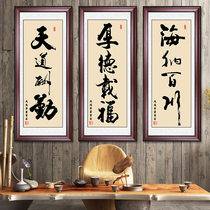 天道酬勤
厚德载福
海纳百川